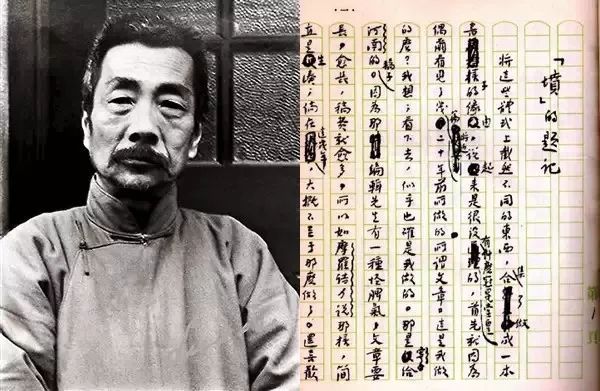 「墳」的題记
将這些體式上截然不同的東西，合集了做成一本
書樣子的緣由，说起來是很没有什麽冠冕堂皇的，首先就因為
偶爾看見了幾篇将近二十年前所做的所谓文章。這是我做
的麽？我想。看下去，似乎也確是我做的。那是寄给
河南的稿子；因為那編輯先生有一種怪脾氣，文章要
長，愈長，稿費就愈多。所以如摩羅詩力说那樣，簡
直是生湊；倘在這幾年，大概不至于那麽做了。還喜歡